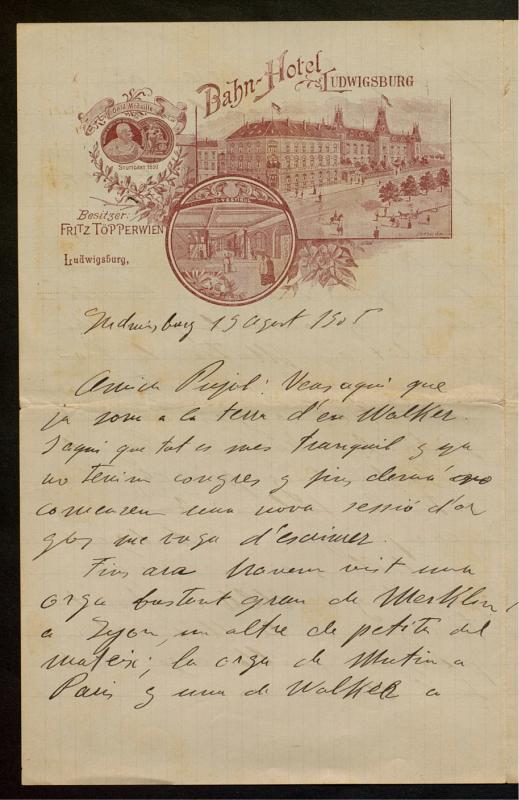 Bahn-Hotel
Ludwigsburg
Gold. Medaille
Stuttgart 1890
Vestibül
Besitzer:
Fritz Töpperwien
Ludwigsburg,
Ludwisburg 19 agost 1905
Amich Pujol: Veus aqui que
ja som a la terra d'en Walker.
Y aqui que tot es mes tranquil y ya
no tenim congres y fins demá no
comensem una nova sessió d'or
gas me vaga d'escriurer.
Fins ara havem vist una
orga bastant gran de Merklin,
a Lyon, un altre de petita del
mateix; la orga de Mutin a
Paris y una de Walker a